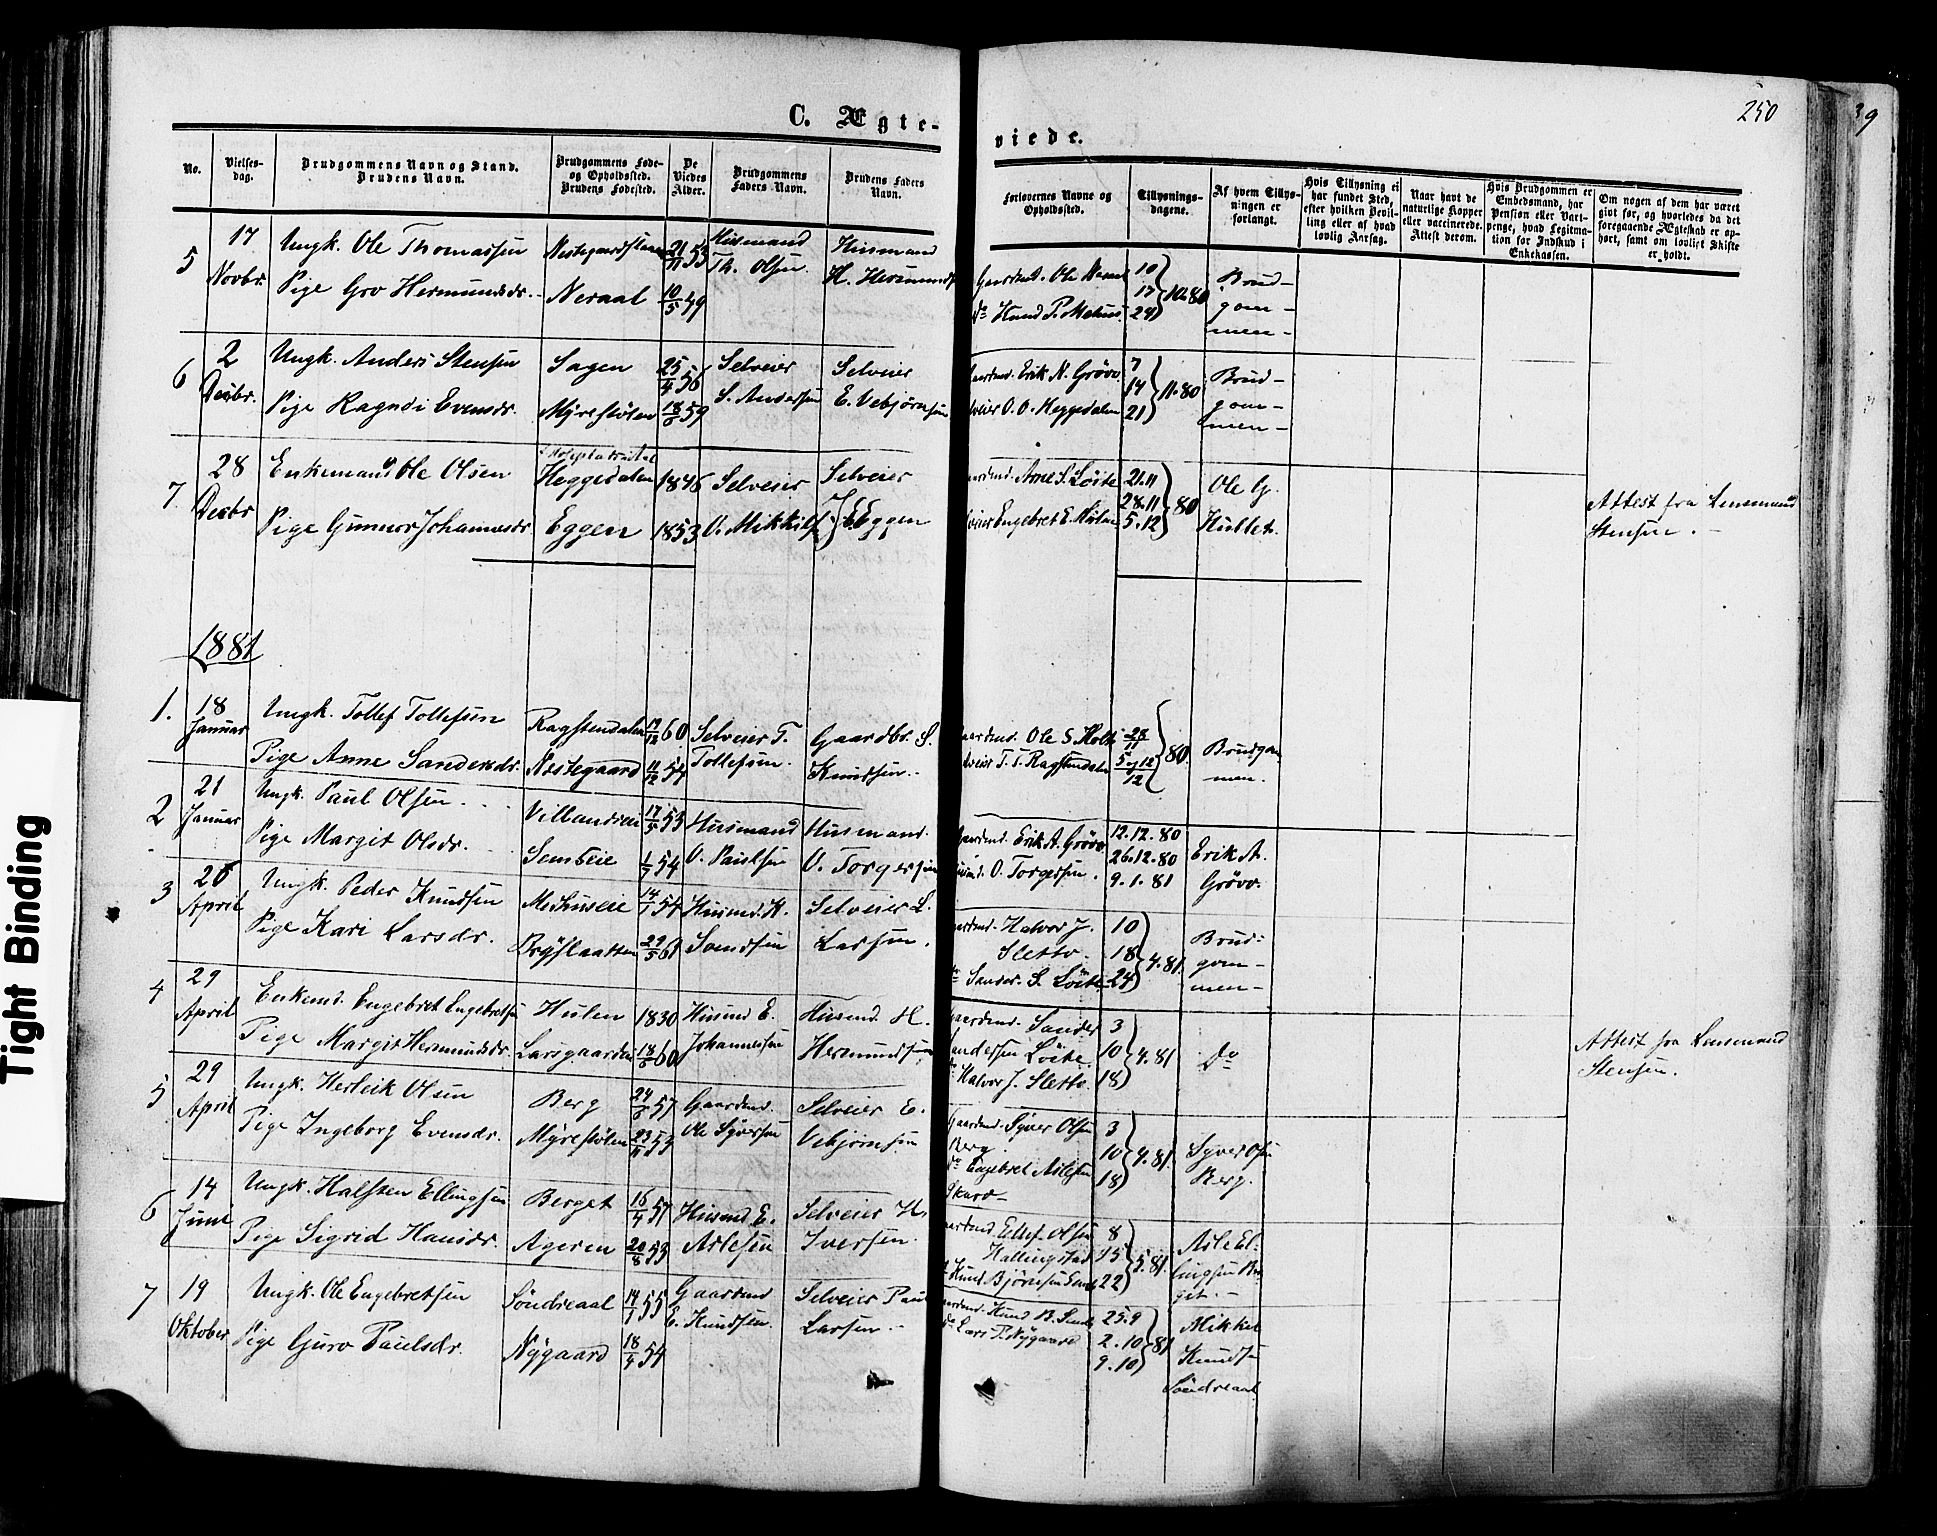 250
39
C. Ægte-
viede.
No.
Vielses-
dag.
Brudgommens Navn og Stand.
Brudens Navn.
Brudgommens Føde-
og Opholdssted.
Brudens Fødested.
De
Viedes
Alder.
Brudgommens
Faders Navn.
Brudens Faders
Navn.
Forlovernes Navne og
Opholdssted.
Tillysnings-
dagene.
Af hvem Tillys-
ningen er
forlangt.
Hvis Tillysning ei
har fundet Sted,
efter hvilken Bevil-
ling eller af hvad
lovlig Aarsag.
Naar havt de
naturlige Kopper
eller vaccinerede.
Attest derom.
Hvis Brudgommen er
Embedsmand, har
Pension eller Vart-
penge, hvad Legitima-
tion for Indskud i
Enkekassen.
Om nogen af dem har været
gift før, og hvorledes da det
foregaaende Ægteskab er op-
hørt, samt om lovligt Skifte
er holdt.
5
17
Novbr.
Ungk. Ole Thomassen
Pige Gro Hermundsdr.
Neraal
21/11 53
10/5 59
Husmand
Th. Olsen
Husmand
H. Hermunds
Gaardmd. Ole
do Knud P. Mehus
10
17
24
10.80
Brud-
gom-
men-
6
2
Decbr.
Ungk. Anders Stensen
Pige Ragndi Evensdr.
Sagen
Myrestølen
25/4 56
18/6 59
Selveier
S. Andersen
Selveier
E. Vebjørnsen
Gaardmd. Erik N. Grøvo
Selveier O. O. Heggedalen
7
14
21
11.80
Brud-
gom-
men-
7.
28
Decbr
Enkemand Ole Olsen
Pige Gunnor Johannesdr.
Heggedalen
Eggen
1846
1853
Selveier
O. Mikkels
Selveier
J. E. Eggen
Gaardmd. Arne S. Løite
Selveier Engebret E.
21.11
28.11
5.12
80
Ole G.
Hullet.
Attest fra Lensmand
Stensen. -
1881
1.
18
Januar
Ungk. Tollef Tollefsen
Pige Anne Sandersdr.
Ragstendalen
Nestegaard
60
11/12 54
Selveier T.
Tollefsen.
Gaardbr. S.
Knudsen.
Gaardmd. Ole S. Holt
Selveier T. T. Ragstendalen
28/11
5 og 12/12
80.
Brudgom
men.
2
21
Januar
Ungk. Paul Olsen
Pige Margit Olsdr.
Villandeie
Semseie
17/5 53
54
Husmand
O. Paulsen
Husmand.
O. Torgersen
Gaardmd. Erik A. Grøvo
Husmd. O. Torgersen.
12.12.80
26.12.80
9.1.81
Erik A.
Grøvo.
3
26
April
Ungk. Peder Knudsen
Pige Kari Larsdr.
Mehuseie
14/1 54
29/5 61
Husmd. K.
Svendsen
Selveier L.
Larsen.
Gaardmd. Halvor J.
Sletto.
do Sander S. Løite
10
18
24
4.81
Brud-
gom-
men-
4
29
April
Enkemd. Engebret Engebretsen
Pige Margit Hermundsdr.
Hulen
Larsgaarden
1830
18/6 60
Husmd E.
Johannesen
Husmd. H.
Hermundsen
Gaardmd. Sander
Sandersen Løite
do Halvor J. Sletto.
3
10
18
4.81
do
Attest fra Lensmand
Stensen.
5
29
April
Ungk. Herleik Olsen
Pige Ingeborg Evensdr.
Berg
Myrestølen
24/6 57
23/11 53
Gaardmd.
Ole Syversen
Selveier E.
Vebjørnsen
Gaardmd. Syver Olsen
Berg.
do Engebret Aslesen
Skaro-
3
10
18
4.81
Syver Olsen
Berg.
6
14
Juni
Ungk. Halsten Ellingsen
Pige Sigrid Hansdr.
Berget
Ageren
16/4 57
20/8 53
Husmd E.
Aslesen
Selveier H.
Iversen.
Gaardmd. Ellef Olsen
Hallingstad
do Knud Bjørnsen
8
15
22
5.81
Asle El-
lingsen Ber
get. -
7
19
Oktober
Ungk. Ole Engebretsen
Pige Guro Paulsdr.
Søndreaal
Nygaard
14/1 55
18/4 54
Gaardmd
E. Knudsen.
Selveier Paul
Larsen -
Gaardmd. Knud B.
do Lars P. Nygaard
25.9
2.10
9.10
81
Mikkel
Knudsen
Søndreaal
Tight Binding